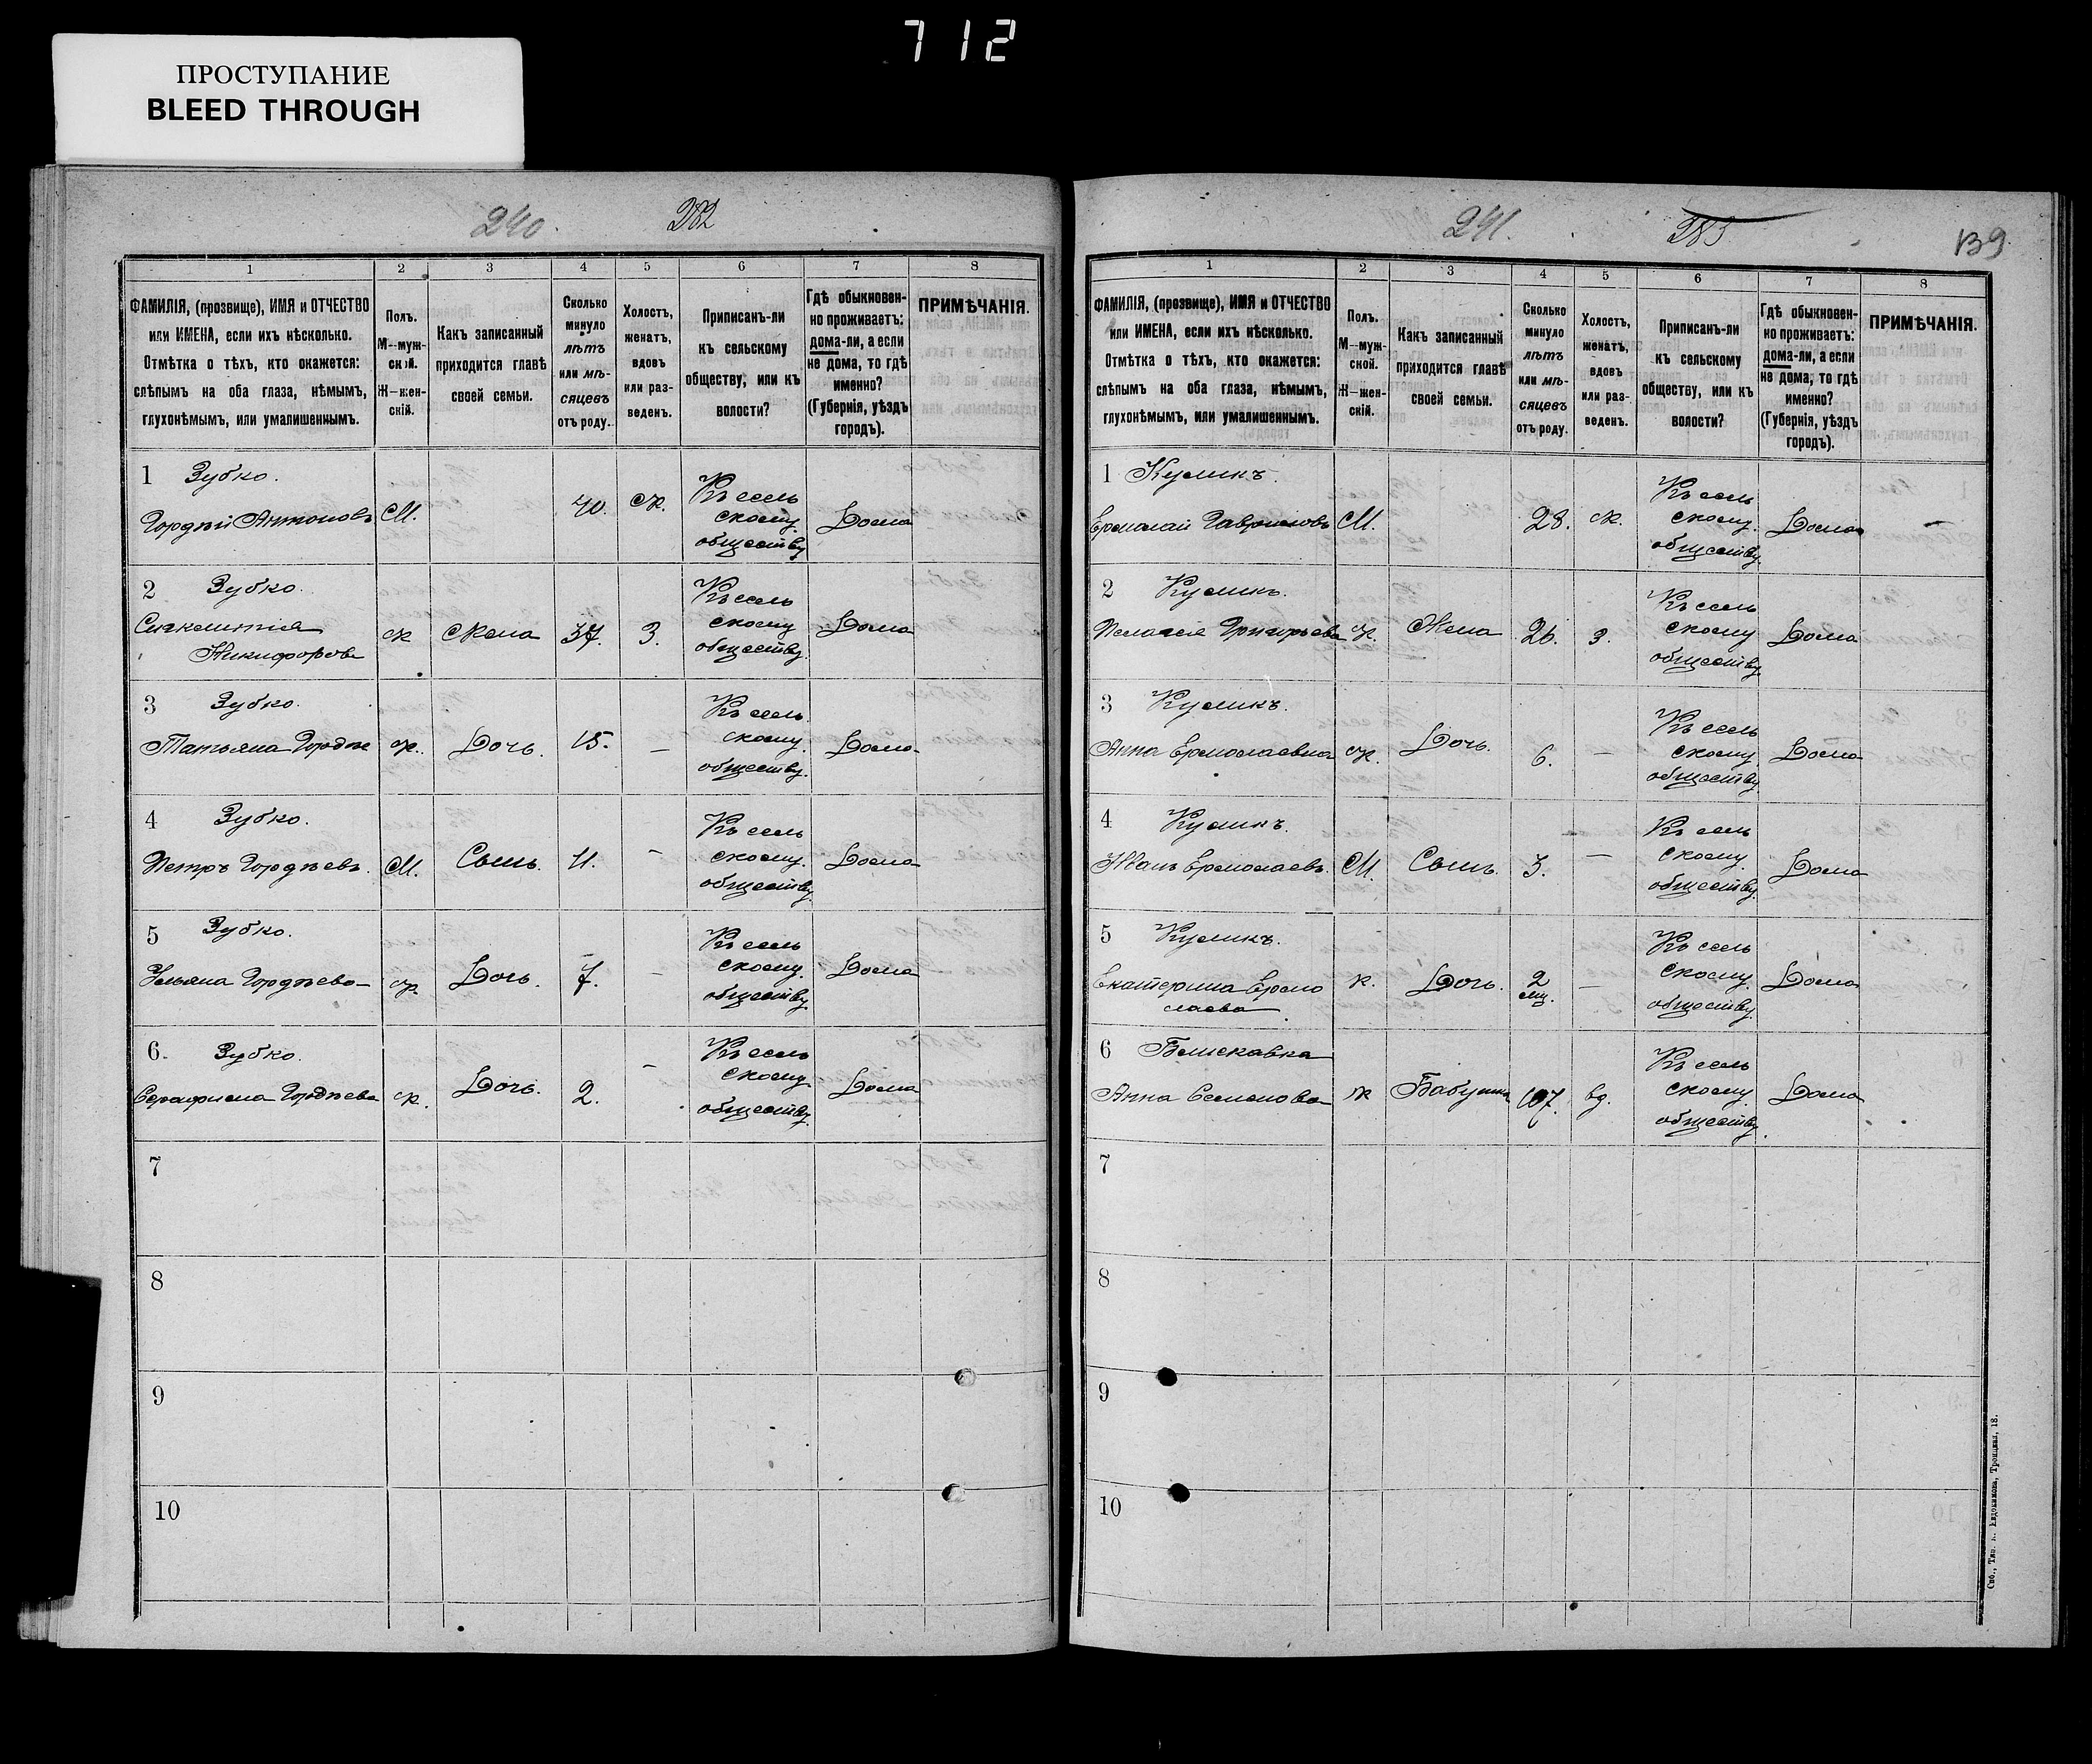 712
ПРОСТУПАНИЕ
BLEED THROUGH
240. 282
1 2 3 4 5 6 7 8
ФАМИЛІЯ, (прозвище), ИМЯ и ОТЧЕСТВО или ИМЕНА, если ихъ нѣсколько. Отмѣтка о тѣхъ, кто окажется: слѣпымъ на оба глаза, нѣмымъ, глухонѣмымъ, или умалишеннымъ.
Полъ. М—мужской. Ж—женскій.
Какъ записанный приходится главѣ своей семьи.
Сколько минуло лѣтъ или мѣсяцевъ отъ роду.
Холостъ, женатъ, вдовъ или разведенъ.
Приписанъ-ли къ сельскому обществу, или къ волости?
Гдѣ обыкновенно проживаетъ: дома-ли, а если не дома, то гдѣ именно? (Губернія, уѣздъ городъ).
ПРИМѢЧАНІЯ.
1 Зубко.
Гордѣй Антоновъ М. 40. ж. Къ сельскому обществу Дома
2 Зубко.
Синклитія Никифорова ж Жена 37. З. Къ сельскому обществу Дома
3 Зубко.
Татьяна Гордѣе ж. Дочь. 15. — Къ сельскому обществу. Дома
4 Зубко.
Петръ Гордѣевъ. М. Сынъ. 11. — Къ сельскому. обществу Дома
5 Зубко.
Ульяна Гордѣева ж. Дочь. 7. — Къ сельскому. обществу Дома
6. Зубко.
Серафима Гордѣева ж. Дочь. 2. — Къ сельскому обществу. Дома
7
8
9
10
241. 283 139
1 2 3 4 5 6 7 8
ФАМИЛІЯ, (прозвище), ИМЯ и ОТЧЕСТВО или ИМЕНА, если ихъ нѣсколько. Отмѣтка о тѣхъ, кто окажется: слѣпымъ на оба глаза, нѣмымъ, глухонѣмымъ, или умалишеннымъ.
Полъ. М—мужской. Ж—женскій.
Какъ записанный приходится главѣ своей семьи.
Сколько минуло лѣтъ или мѣсяцевъ отъ роду.
Холостъ, женатъ, вдовъ или разведенъ.
Приписанъ-ли къ сельскому обществу, или къ волости?
Гдѣ обыкновенно проживаетъ: дома-ли, а если не дома, то гдѣ именно? (Губернія, уѣздъ городъ).
ПРИМѢЧАНІЯ.
1 Куликъ.
Ермолай Гавриловъ М. 28. ж. Къ сельскому. обществу Дома —
2 Куликъ.
Пелагея Григорьева ж. Жена 26. З. Къ сельскому обществу Дома
3 Куликъ.
Анна Ермолаевна ж. Дочь. 6. — Къ сельскому обществу Дома
4 Куликъ.
Иванъ Ермолаевъ. М. Сынъ. 3. — Къ сельскому. обществу. Дома
5 Куликъ.
Екатерина Ермолаева ж. Дочь. 2 мц. — Къ сельскому. обществу. Дома
6
Анна Семенова ж Бабушка 107. вд. Къ сельскому. обществу. Дома
7
8
9
10
Евдокимова, Троицкая, 18.